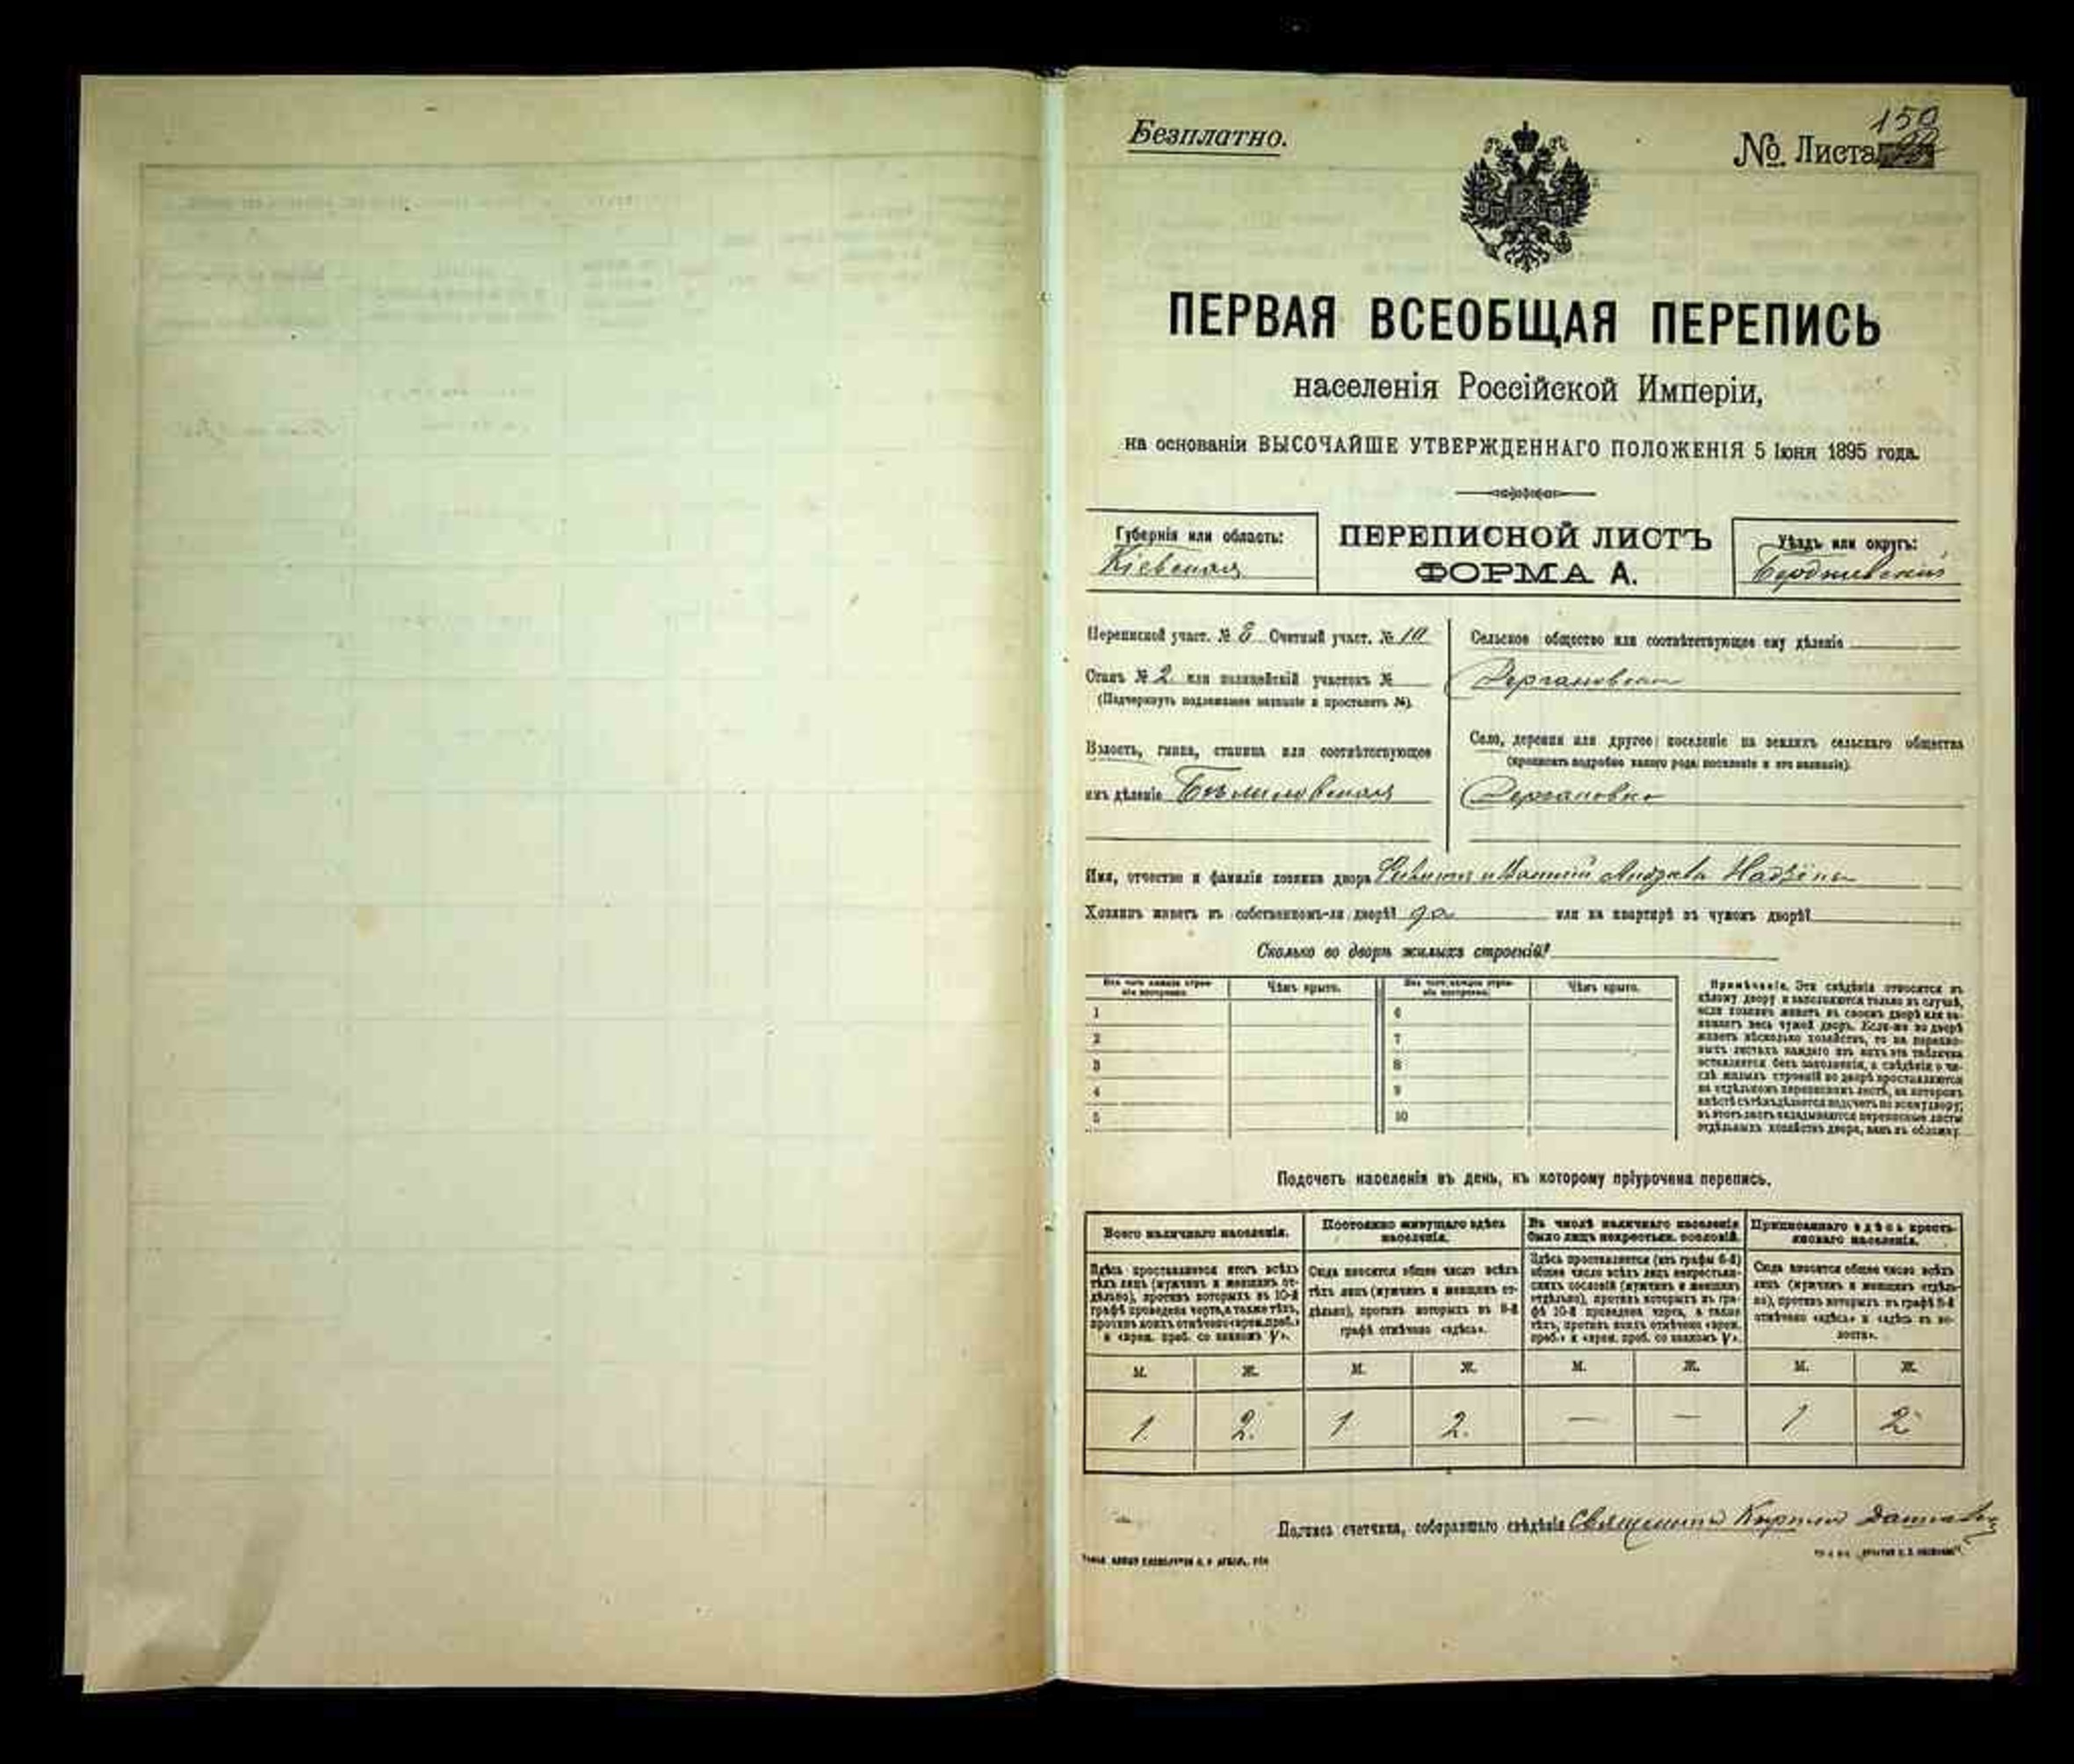 Безплатно.
150
№ Листа
ПЕРВАЯ ВСЕОБЩАЯ ПЕРЕПИСЬ
населенія Россійской Имперіи,
на основаніи ВЫСОЧАЙШЕ УТВЕРЖДЕННАГО ПОЛОЖЕНІЯ 5 Іюня 1895 года.
Губернія или область:
Кіевская
ПЕРЕПИСНОЙ ЛИСТЪ
ФОРМА А.
Уѣздъ или округъ:
Бердичевскій
Переписной участ. № 8 Счетный участ. № 10
Станъ № 2 или полицейскій участокъ №
(Подчеркнуть подлежащее названіе и проставить №).
Волость, гмина, станица или соотвѣтствующее
имъ дѣленіе Бѣлиловская
Сельское общество или соотвѣтствующее ему дѣленіе
Село, деревня или другое поселеніе на земляхъ сельскаго общества
(прописать подробно какого рода поселеніе и его названіе).
Имя, отчество и фамилія хозяина двора
Хозяинъ живетъ въ собственномъ-ли дворѣ? да или на квартирѣ въ чужомъ дворѣ?
Сколько во дворѣ жилыхъ строеній?
Изъ чего каждое строе-
ніе построено.
Чѣмъ крыто.
Изъ чего каждое строе-
ніе построено.
Чѣмъ крыто.
1
2
3
4
5
6
7
8
9
10
Примѣчаніе. Эти свѣдѣнія относятся къ
цѣлому двору и заполняются только въ случаѣ,
если хозяинъ живетъ въ своемъ дворѣ или за-
нимаетъ весь чужой дворъ. Если-же во дворѣ
живетъ нѣсколько хозяйствъ, то на перепис-
ныхъ листахъ каждаго изъ нихъ эта табличка
оставляется безъ заполненія, а свѣдѣнія о чи-
слѣ жилыхъ строеній во дворѣ проставляются
на отдѣльномъ переписномъ листѣ, на которомъ
вмѣстѣ съ тѣмъ дѣлается подсчетъ по всему двору;
въ этотъ листъ вкладываются переписные листы
отдѣльныхъ хозяйствъ двора, какъ въ обложку.
Подсчетъ населенія въ день, къ которому пріурочена перепись.
Всего наличнаго населенія.
Здѣсь проставляется итогъ всѣхъ
тѣхъ лицъ (мужчинъ и женщинъ от-
дѣльно), противъ которыхъ въ 10-й
графѣ проведена черта, а также тѣхъ,
противъ коихъ отмѣчено «врем. преб.»
и «врем. преб. со знакомъ V».
Постоянно живущаго здѣсь
населенія.
Сюда вносится общее число всѣхъ
тѣхъ лицъ (мужчинъ и женщинъ от-
дѣльно), противъ которыхъ въ 9-й
графѣ отмѣчено «здѣсь».
Въ числѣ наличнаго населенія
было лицъ некрестьян. сословій.
Здѣсь проставляется (изъ графы 6-й)
общее число всѣхъ лицъ некрестьян-
скихъ сословій (мужчинъ и женщинъ
отдѣльно), противъ которыхъ въ гра-
фѣ 10-й проведена черта, а также
тѣхъ, противъ коихъ отмѣчено «врем.
преб.» и «врем. преб. со знакомъ V».
Приписаннаго здѣсь кресть-
янскаго населенія.
Сюда вносится общее число всѣхъ
лицъ (мужчинъ и женщинъ отдѣль-
но), противъ которыхъ въ графѣ 8-й
отмѣчено «здѣсь» и «здѣсь въ во-
лости».
М. Ж. М. Ж. М. Ж. М. Ж.
1 2. 1 2. — — 1 2
Подпись счетчика, собиравшаго свѣдѣнія Священникъ